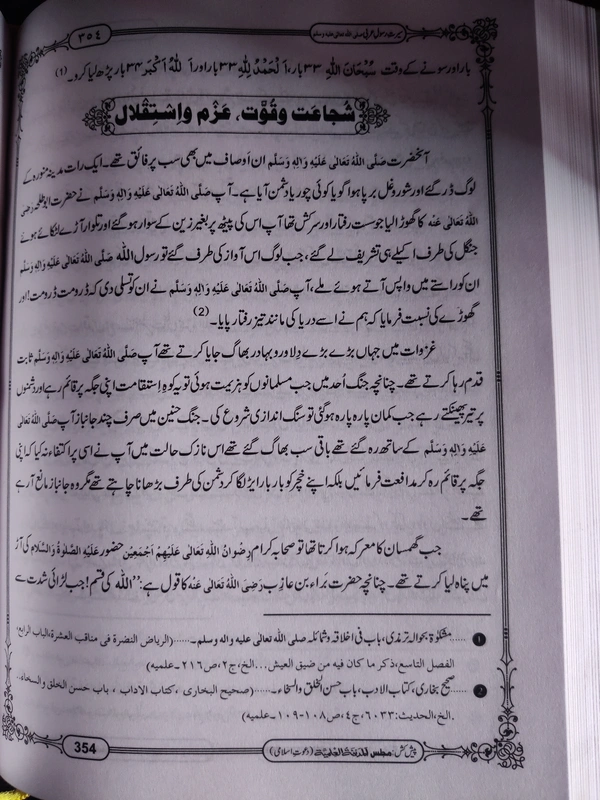 سیرت رسول عربی صلی اللہ تعالی علیہ وسلم ۳۵٤
بار اور سونے کے وقت سُبْحَانَ اللّٰهِ ۳۳ بار، اَلْحَمْدُ لِلّٰهِ ۳۳ بار اور اَللّٰهُ اَکْبَر ۳۴ بار پڑھ لیا کرو۔ (۱)
شُجاعَت وقُوَّت، عَزْم واِسْتِقْلال
آنحضرت صَلَّی اللّٰهُ تَعَالٰی عَلَیْهِ وَاٰلِهٖ وَسَلَّم ان اَوصاف میں بھی سب پر فائق تھے۔ ایک رات مدینہ منورہ کے
لوگ ڈر گئے اور شور وغل برپا ہوا گویا کوئی چور یا دشمن آیا ہے۔ آپ صَلَّی اللّٰهُ تَعَالٰی عَلَیْهِ وَاٰلِهٖ وَسَلَّم نے حضرت ابوطلحہ رَضِیَ
اللّٰهُ تَعَالٰی عَنْهُ کا گھوڑا لیا جو سست رفتار اور سرکش تھا آپ اس کی پیٹھ پر بغیر زین کے سوار ہو گئے اور تلوار آڑے لٹکائے ہوئے
جنگل کی طرف اکیلے ہی تشریف لے گئے، جب لوگ اس آواز کی طرف گئے تو رسول اللّٰه صَلَّی اللّٰهُ تَعَالٰی عَلَیْهِ وَاٰلِهٖ وَسَلَّم
ان کو راستے میں واپس آتے ہوئے ملے، آپ صَلَّی اللّٰهُ تَعَالٰی عَلَیْهِ وَاٰلِهٖ وَسَلَّم نے ان کو تسلی دی کہ ڈرو مت ڈرو مت! اور
گھوڑے کی نسبت فرمایا کہ ہم نے اسے دریا کی مانند تیز رفتار پایا۔ (2)
غزوات میں جہاں بڑے بڑے دِلاور و بہادر بھاگ جایا کرتے تھے آپ صَلَّی اللّٰهُ تَعَالٰی عَلَیْهِ وَاٰلِهٖ وَسَلَّم ثابت
قدم رہا کرتے تھے۔ چنانچہ جنگ اُحد میں جب مسلمانوں کو ہزیمت ہوئی تو یہ کوہِ اِستقامت اپنی جگہ پر قائم رہے اور دشمنوں
پر تیر پھینکتے رہے جب کمان پارہ پارہ ہو گئی تو سنگ اندازی شروع کی۔ جنگ حنین میں صرف چند جانباز آپ صَلَّی اللّٰهُ تَعَالٰی
عَلَیْهِ وَاٰلِهٖ وَسَلَّم کے ساتھ رہ گئے تھے باقی سب بھاگ گئے تھے اس نازک حالت میں آپ نے اسی پر اکتفاء نہ کیا کہ اپنی
جگہ پر قائم رہ کر مدافعت فرمائیں بلکہ اپنے خچر کو بار بار ایڑ لگا کر دشمن کی طرف بڑھانا چاہتے تھے مگر وہ جانباز مانع آ رہے
تھے۔
جب گھمسان کا معرکہ ہوا کرتا تھا تو صحابہ کرام رِضْوَانُ اللّٰهِ تَعَالٰی عَلَیْهِمْ اَجْمَعِیْن حضور عَلَیْهِ الصَّلٰوةُ وَالسَّلَام کی آڑ
میں پناہ لیا کرتے تھے۔ چنانچہ حضرت بَراء بن عازِب رَضِیَ اللّٰهُ تَعَالٰی عَنْهُ کا قول ہے: ’’اللّٰہ کی قسم! جب لڑائی شدت سے
۱ ......مشکوٰۃ بحوالہ ترمذی، باب فی اخلاقہ وشمائلہ صلی اللہ تعالی علیہ والہ وسلم۔......(الریاض النضرة فی مناقب العشرة،الباب الرابع،
الفصل التاسع،ذکر ما کان فیه من ضیق العیش...الخ،ج۲،ص۲۱٦۔علمیه)
۲ ......صحیح بخاری، کتاب الادب، باب حسن الخلق والسخاء۔......(صحیح البخاری، کتاب الاداب، باب حسن الخلق والسخاء..
.الخ،الحدیث:۶۰۳۳،ج٤،ص۱۰۸-۱۰۹۔علمیه)
پیش کش: مجلس المدینۃ العلمیۃ (دعوت اسلامی) 354